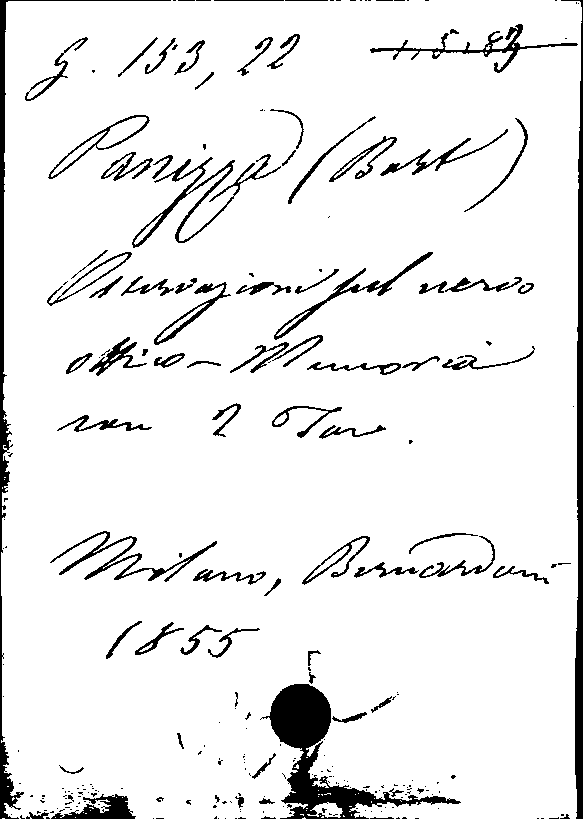 G. 153, 22 1,5,83
Panizza (Bart)
Osservazioni sul nervo
ottico – Memoria
con 2 Tav.
Milano, Bernardoni
1855